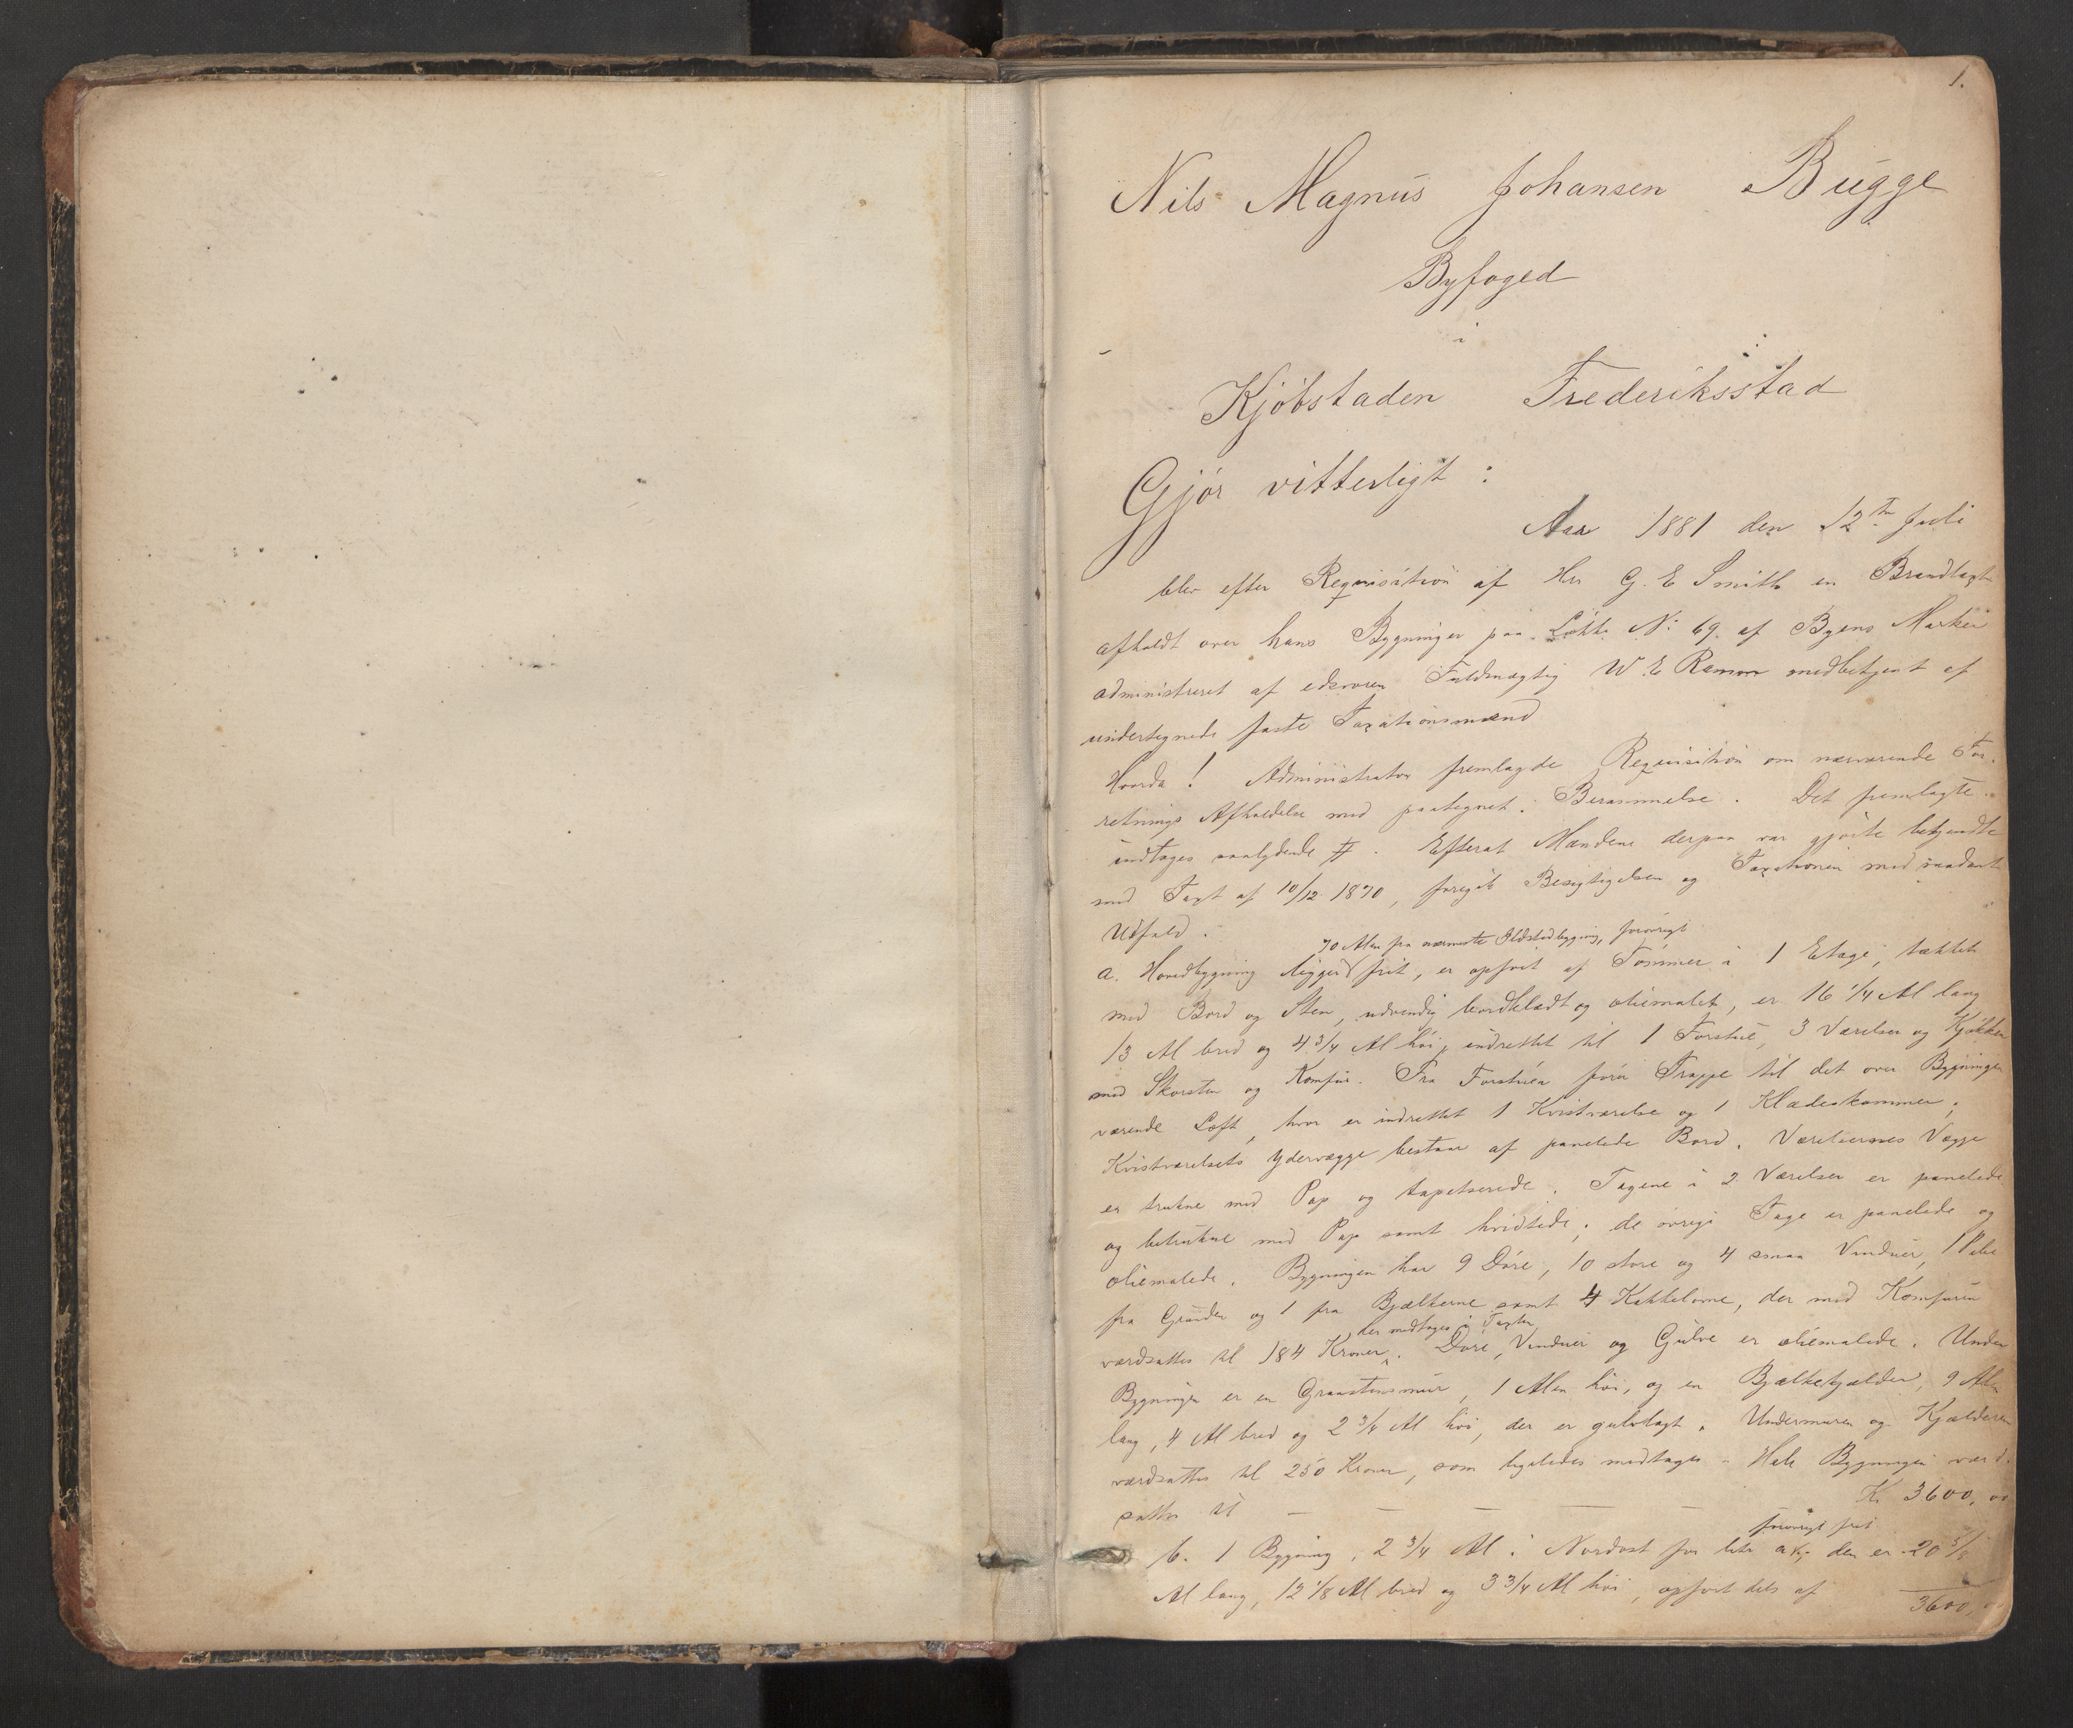 1.
Nils Magnus Johansen Bugge
Byfoged
i
Kjøbstaden Frederiksstad
Gjør vitterligt:
Aar 1881 den 12te Juli
blev efter Requisition af Hrr G. E Smith en Brandtaxt
afholdt over hans Bygninger paa Lökke No 69. af Byens Marker
administreret af edsvoren Fuldmægtig W. E Ramm medbetjent af
undertegnede faste Taxationsmænd
Hvorda! Administrator fremlagde Requisition om nærværende For-
retnings Afholdelse med paategnet Berammelse. Det fremlagte
indtages saalydende #. Efterat Mændene derpaa var gjorte bekjendte
med Taxt af 10/12 1870, foregik Besigtigelsen og Taxationen med saadant
Udfald.
70 Alen fra nærmeste Ildstedbygning, forøvrigt
a. Hovedbygning ligger frit, er opført af Tømmer i 1 Etage, tækket
med Bord og Sten, udvendig bordklædt og oliemalet, er 16 1/4 Al lang
13 Al bred og 4 3/4 Al høi, indrettet til 1 Forstue, 3 Værelser og Kjøkken
med Skorsten og Komfur. Fra Forstuen fører Trappe til det over Bygningen
værende Loft, hvor er indrettet 1 Kvistværelse og 1 Klædeskammer.
Kvistværelsets Ydervægge bestaar af panelede Bord. Værelsernes Vægge
er trukne med Pap og tapetserede. Tagene i 2 Værelser er panelede
og betrukne med Pap samt hvidtede; de øvrige Tage er panelede og
oliemalede. Bygningen har 9 Døre, 10 store og 4 smaa Vinduer, 1 Pibe
fra Grunden og 1 fra Bjælkerne samt 4 Kakkelovne, der med Komfuren
her medtages i Taxten
værdsattes til 184 Kroner. Døre, Vinduer og Gulve er oliemalede. Under
Bygningen er en Graastensmur, 1 Alen høi, og en Bjælkekjælder, 9 Alen
lang, 4 Al bred og 2 3/4 Al høi, der er gulvlagt. Undermuren og Kjælderen
værdsattes til 250 Kroner, som ligeledes medtages. Hele Bygningen værd-
sattes til — — — — Kr 3600,00
forøvrigt frit
b. 1 Bygning, 2 3/4 Al i Nordost for litr a, den er 20 5/8
Al lang, 12 1/8 Al bred og 3 3/4 Al høi, opført dels af
3600,00